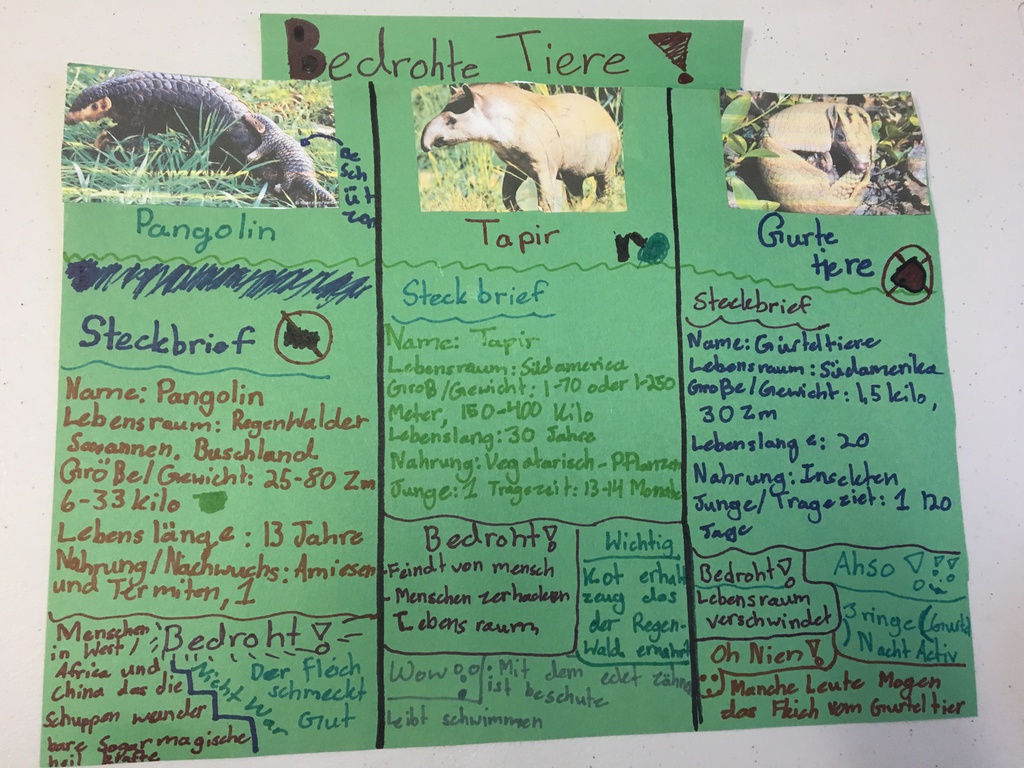 Bedrohte Tiere!
Pangolin
Steckbrief
Name: Pangolin
Lebensraum: Regenwalder
Savannen, Buschland
GröBe/Gewicht: 25-80 Zm
6-33 kilo
Lebens länge: 13 Jahre
Nahrung/Nachwuchs: Amiesen
und Termiten, 1
Bedroht!
Menschen
in West/
Africa und
China das die
Schuppen wunder
bare Sogar magische
heil kräfte
Der Flach
schmeckt
Gut
Nicht Wa
Tapir
Steckbrief
Name: Tapir
Lebensraum: Südamerica
GroB/Gewicht: 1-70 oder 1-250
Meter, 150-400 Kilo
Lebenslang: 30 Jahre
Nahrung: Vegatarisch-Pflanzen
Junge: 1 Tragezeit: 13-14 Monate
Bedroht!
-Feindt von mensch
-Menschen zerhacken
Lebensraum
Wichtig
Kot erhalt
zeug das
der Regen-
Wald ernährt
Wow!: Mit dem zähn
ist beschute
leibt schwimmen
Gurte
tiere
Steckbrief
Name: Gürteltiere
Lebensraum: Südamerika
GroBe/Gewicht: 1,5 kilo,
30 Zm
Lebenslang e: 20
Nahrung: Insekten
Junge/Trageziet: 1 120
Tage
Bedroht!
Lebensraum
verschwindet
Ahso !
3 ringe (Gurtel)
Nacht Activ
Oh Nien!
Manche Leute Mogen
das Fleich vom Gurteltier